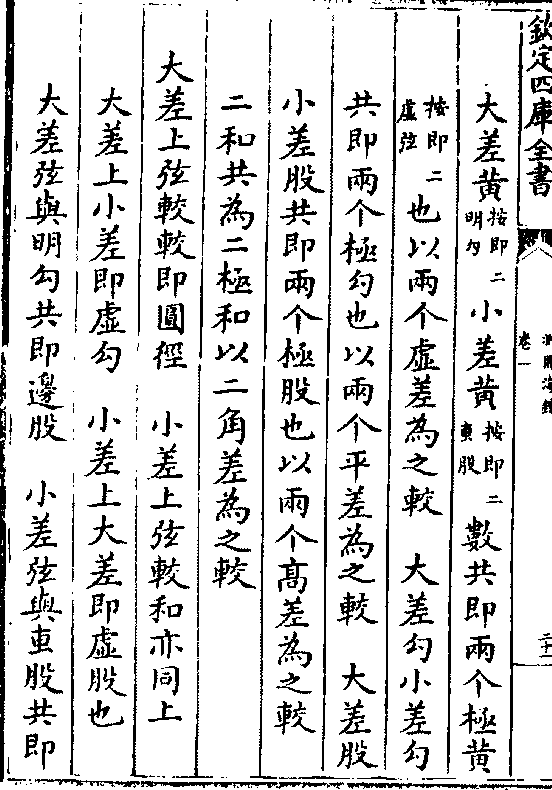 欽定四庫全書
測圓海鏡
卷一
二十一
大差黃按即二明勾小差黃按即二叀股數共即兩个極黃
按即二虛弦也以兩个虛差為之較 大差勾小差勾
共即兩个極勾也以兩个平差為之較 大差股
小差股共即兩个極股也以兩个高差為之較
二和共為二極和以二角差為之較
大差上弦較較即圓徑 小差上弦較和亦同上
大差上小差即虛勾 小差上大差即虛股也
大差弦與明勾共即邊股 小差弦與叀股共即